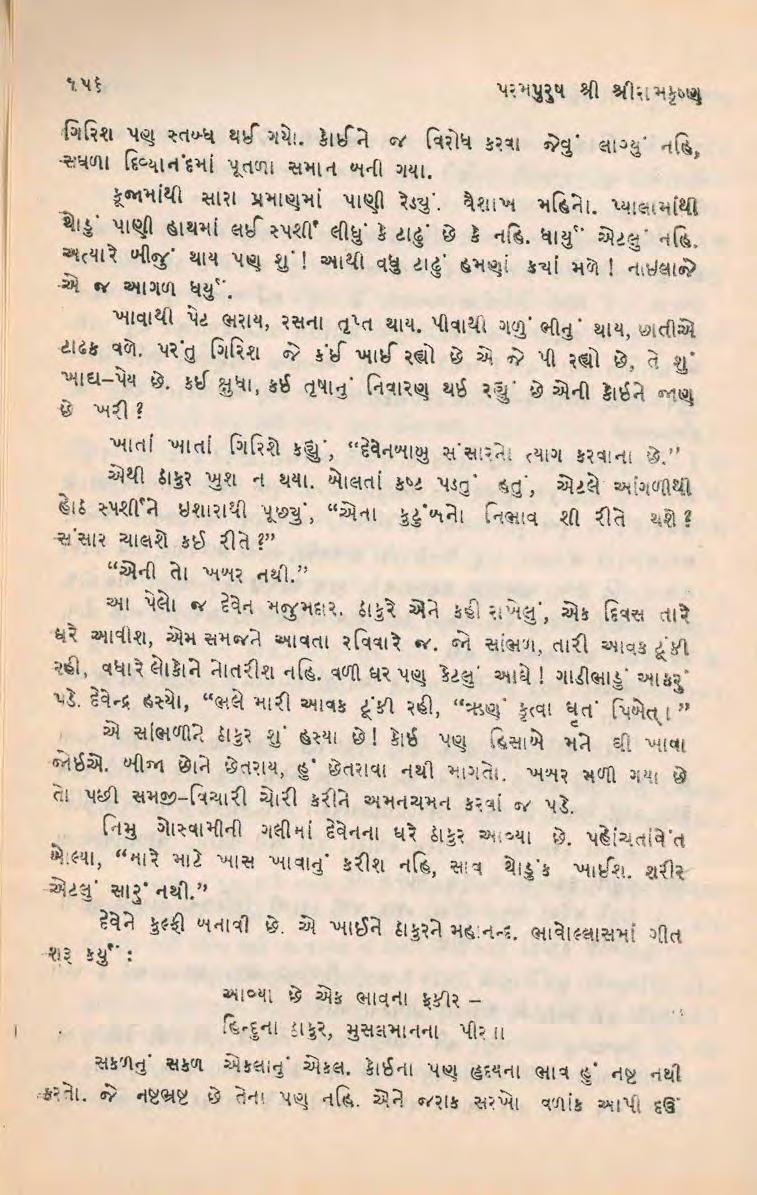 ૧૫૬
પરમપુરુષ શ્રી શ્રીરામકૃષ્ણ
ગિરિશ પણ સ્તબ્ધ થઈ ગયો. કોઈને જ વિરોધ કરવા જેવું લાગ્યું નહિ,
સઘળા દિવ્યાનંદમાં પૂતળા સમાન બની ગયા.
કૂજામાંથી સારા પ્રમાણમાં પાણી રેડ્યું. વૈશાખ મહિનો. પ્યાલામાંથી
થોડું પાણી હાથમાં લઈ સ્પર્શી લીધું કે ટાઢું છે કે નહિ. ધાર્યું એટલું નહિ.
અત્યારે બીજું થાય પણ શું! આથી વધુ ટાઢું હમણાં ક્યાં મળે! નાઇલાજે
એ જ આગળ ધર્યું.
ખાવાથી પેટ ભરાય, રસના તૃપ્ત થાય. પીવાથી ગળું ભીનું થાય, છાતીએ
ટાઢક વળે. પરંતુ ગિરિશ જે કંઈ ખાઈ રહ્યો છે એ જે પી રહ્યો છે, તે શું
ખાદ્ય-પેય છે. કઈ ક્ષુધા, કઈ તૃષાનું નિવારણ થઈ રહ્યું છે એની કોઈને જાણ
છે ખરી?
ખાતાં ખાતાં ગિરિશે કહ્યું, “દેવેનબાબુ સંસારનો ત્યાગ કરવાના છે.”
એથી ઠાકુર ખુશ ન થયા. બોલતાં કષ્ટ પડતું હતું, એટલે આંગળીથી
હોઠ સ્પર્શીને ઇશારાથી પૂછ્યું, “એના કુટુંબનો નિભાવ શી રીતે થશે?
સંસાર ચાલશે કઈ રીતે?”
“એની તો ખબર નથી.”
આ પેલો જ દેવેન મજુમદાર. ઠાકુરે એને કહી રાખેલું, એક દિવસ તારે
ઘરે આવીશ, એમ સમજને આવતા રવિવારે જ. જો સાંભળ, તારી આવક ટૂંકી
રહી, વધારે લોકોને નોતરીશ નહિ. વળી ઘર પણ કેટલું આઘે! ગાડીભાડું આકરું
પડે. દેવેન્દ્ર હસ્યો, “ભલે મારી આવક ટૂંકી રહી, “ઋણં કૃત્વા ઘૃતં પિબેત્।”
એ સાંભળીને ઠાકુર શું હસ્યા છે! કોઈ પણ હિસાબે મને ઘી ખાવા
જોઈએ. બીજા છોને છેતરાય, હું છેતરાવા નથી માગતો. ખબર મળી ગયા છે
તો પછી સમજી-વિચારી ચોરી કરીને અમનચમન કરવાં જ પડે.
નિમુ ગોસ્વામીની ગલીમાં દેવેનના ઘરે ઠાકુર આવ્યા છે. પહોંચતાંવેંત
બોલ્યા, “મારે માટે ખાસ ખાવાનું કરીશ નહિ, સાવ થોડુંક ખાઈશ. શરીર
એટલું સારું નથી.”
દેવેને કુલ્ફી બનાવી છે. એ ખાઈને ઠાકુરને મહાનન્દ. ભાવોલ્લાસમાં ગીત
શરૂ કર્યું :
આવ્યા છે એક ભાવના ફકીર –
હિન્દુના ઠાકુર, મુસલમાનના પીર॥
સકળનું સકળ એકલાનું એકલ. કોઈના પણ હૃદયના ભાવ હું નષ્ટ નથી
કરતો. જે નષ્ટભ્રષ્ટ છે તેના પણ નહિ. એને જરાક સરખો વળાંક આપી દઉં